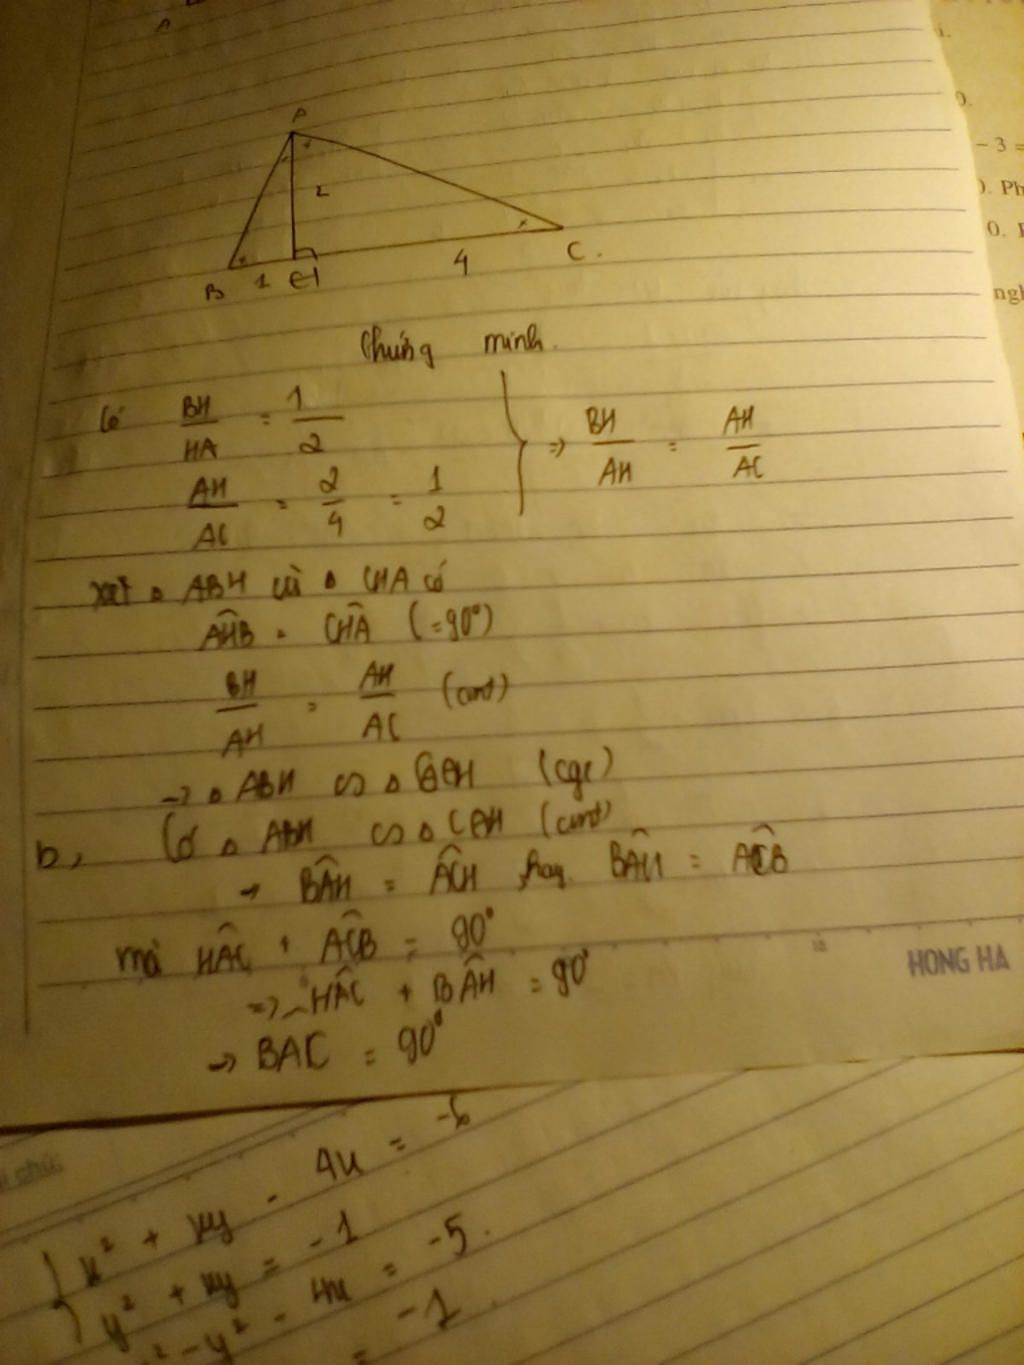 A
2
B 1 H 4 C
Chứng minh.
Có BH/HA = 1/2
AH/AC = 2/4 = 1/2
=> BH/AH = AH/AC
Xét Δ ABH và Δ CHA có
AHB = CHA (=90°)
BH/AH = AH/AC (cmt)
-> Δ ABH ∽ Δ CAH (cgc)
b, Có Δ ABH ∽ Δ CAH (cmt)
-> BAH = ACH hay BAH = ACB
mà HAC + ACB = 90°
=> HAC + BAH = 90°
-> BAC = 90°
HONG HA
x² + xy - 4x = -6
y² + xy = -1
² - y² - 4x = -5.
= -1
- 3 =
). Ph
0.
ngh